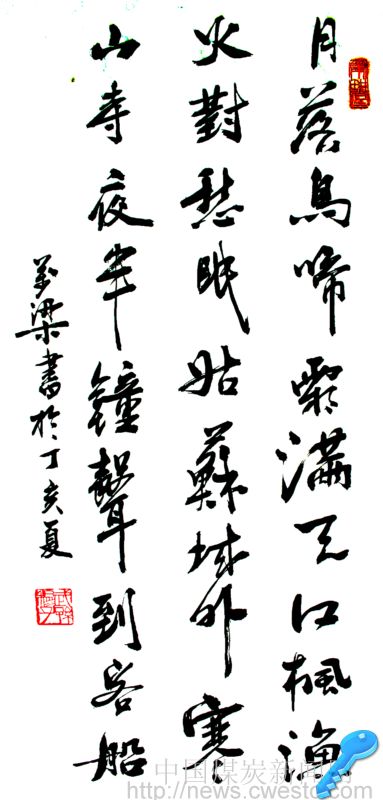 月落烏啼霜滿天江楓漁
火對愁眠姑蘇城外寒
山寺夜半鐘聲到客船
梁書於丁亥夏
中国煤炭新闻网
http://news.cwestc.com